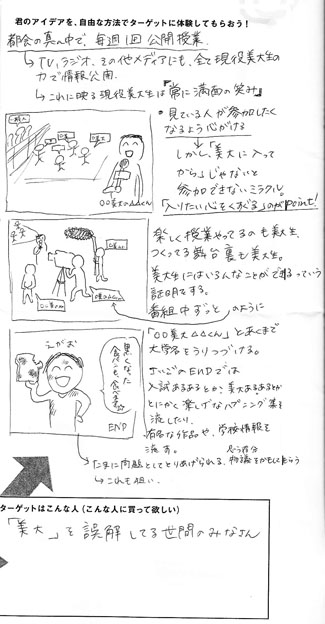 君のアイデアを、自由な方法でターゲットに体験してもらおう！
都会の真ん中で、毎週1回公開授業。
→TV、ラジオ、その他メディアにも、全て現役美大生の
力で情報公開。
→これに映る現役美大生は『常に満面の笑み』
・見ている人が参加したく
なるよう心がける
しかし、「美大に入って
から」じゃないと
参加できないミラクル。
「入りたい心をくすぐる」のがpoint!
〇〇美大△△くん
楽しく授業やってるのも美大生、
つくってる舞台裏も美大生。
美大生にはいろんなことができるっていう
証明をする。
番組中ずっと のように
「〇〇美大△△くん」とあくまで
大学名をうりつづける。
さいごのENDでは
入試あるあるとか、美大あるあるとか
とにかく楽しげなハプニング集を
流したり、
有名な作品や、学校情報を
流す。
えがお
黒くなった
食パンも、食べます☆
END
たまに問題としてとりあげられる、物議をかもした
→これも狙い
ターゲットはこんな人（こんな人に買って欲しい）
「美大」を誤解してる世間のみなさん